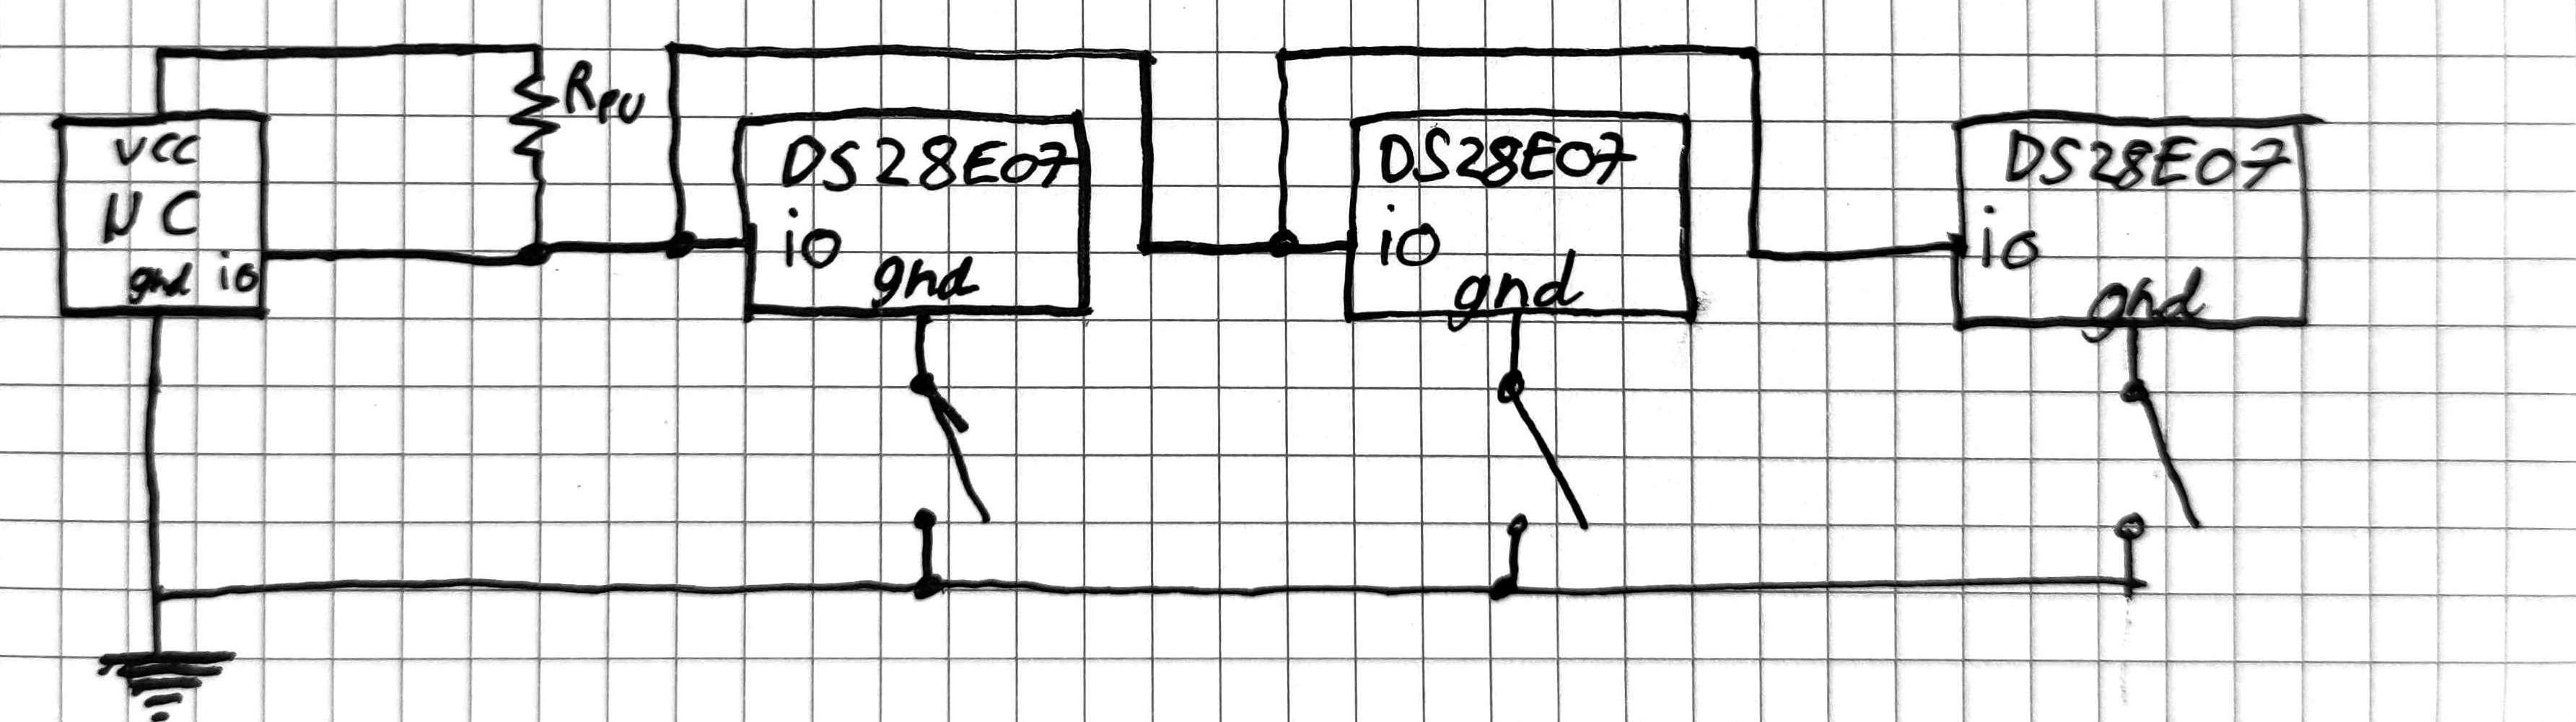 RPU
VCC
μC
gnd io
DS28E07
io
gnd
DS28E07
io
gnd
DS28E07
io
gnd